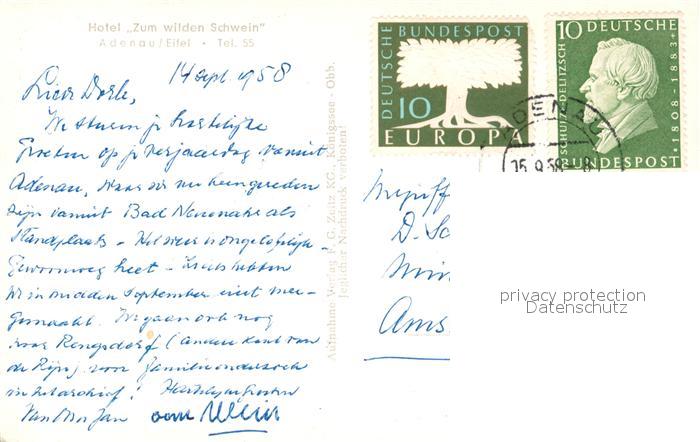 Hotel „Zum wilden Schwein"
Adenau/Eifel • Tel. 55
14 Sept. 1958
Lieve Dorle,
We sturen je hartelijke
Groeten op je verjaardag vanuit
Adenau, waar we nu heengereden
zijn vanuit Bad Neuenahr als
standplaats - Het weer is ongelofelijk -
Gewoonweg heet - Zoiets hebben
we in midden September niet mee-
gemaakt. We gaan ook nog
naar Rengsdorf (andere kant van
de Rijn) voor familieonderzoek
in het archief! Hartelijke groeten
van Jan
Aufnahme Verlag F. G. Zeitz KG., Königssee - Obb.
Jeglicher Nachdruck verboten!
DEUTSCHE BUNDESPOST
10
EUROPA
10 DEUTSCHE
BUNDESPOST
SCHULZE-DELITZSCH
* 1808 - 1883 +
ADENAU
15.9.58-18
Mejuff
D. Sc
Ams
privacy protection
Datenschutz